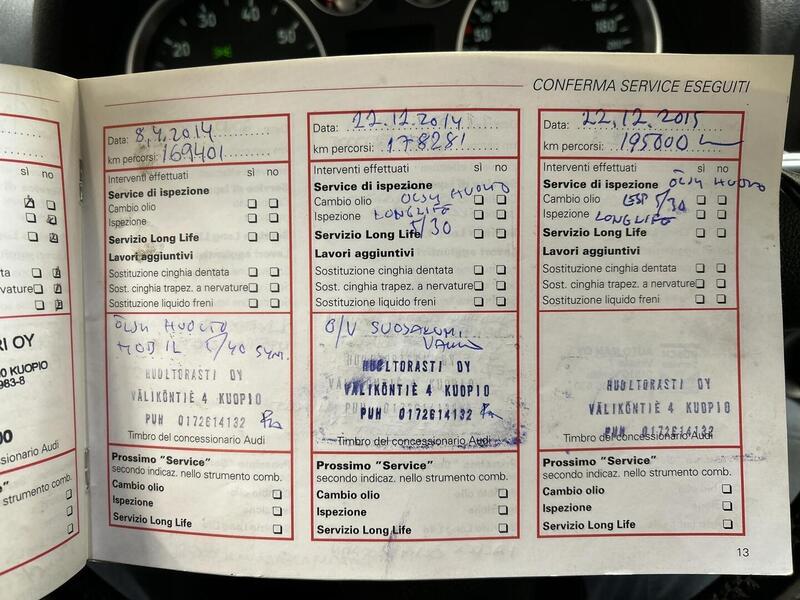 20
50
70
180
CONFERMA SERVICE ESEGUITI
sì no
RI OY
0 KUOPIO
983-8
00
ssionario Audi
e"
o strumento comb.
Data: 8.4.2014
km percorsi: 169401
Interventi effettuati sì no
Service di ispezione
Cambio olio
Ispezione
Servizio Long Life
Lavori aggiuntivi
Sostituzione cinghia dentata
Sost. cinghia trapez. a nervature
Sostituzione liquido freni
ÖLJY HUOLTO
MOBIL 5/40 SYN.
HUOLTORASTI OY
VÄLIKÖNTIÈ 4 KUOPIO
PUH 0172614132
Timbro del concessionario Audi
Prossimo "Service"
secondo indicaz. nello strumento comb.
Cambio olio
Ispezione
Servizio Long Life
Data: 11.12.2014
km percorsi: 178281
Interventi effettuati sì no
Service di ispezione
Cambio olio ÖLJY HUOLTO
Ispezione LONGLIFE
Servizio Long Life 5/30
Lavori aggiuntivi
Sostituzione cinghia dentata
Sost. cinghia trapez. a nervature
Sostituzione liquido freni
HUOLTORASTI OY
VÄLIKÖNTIÈ 4 KUOPIO
PUH 0172614132
Timbro del concessionario Audi
Prossimo "Service"
secondo indicaz. nello strumento comb.
Cambio olio
Ispezione
Servizio Long Life
Data: 22.12.2015
km percorsi: 195000
Interventi effettuati sì no
Service di ispezione ÖLJY HUOLTO
Cambio olio 5/30
Ispezione LONGLIFE
Servizio Long Life
Lavori aggiuntivi
Sostituzione cinghia dentata
Sost. cinghia trapez. a nervature
Sostituzione liquido freni
HUOLTORASTI OY
VÄLIKÖNTIÈ 4 KUOPIO
PUH 0172614132
Timbro del concessionario Audi
Prossimo "Service"
secondo indicaz. nello strumento comb.
Cambio olio
Ispezione
Servizio Long Life
13